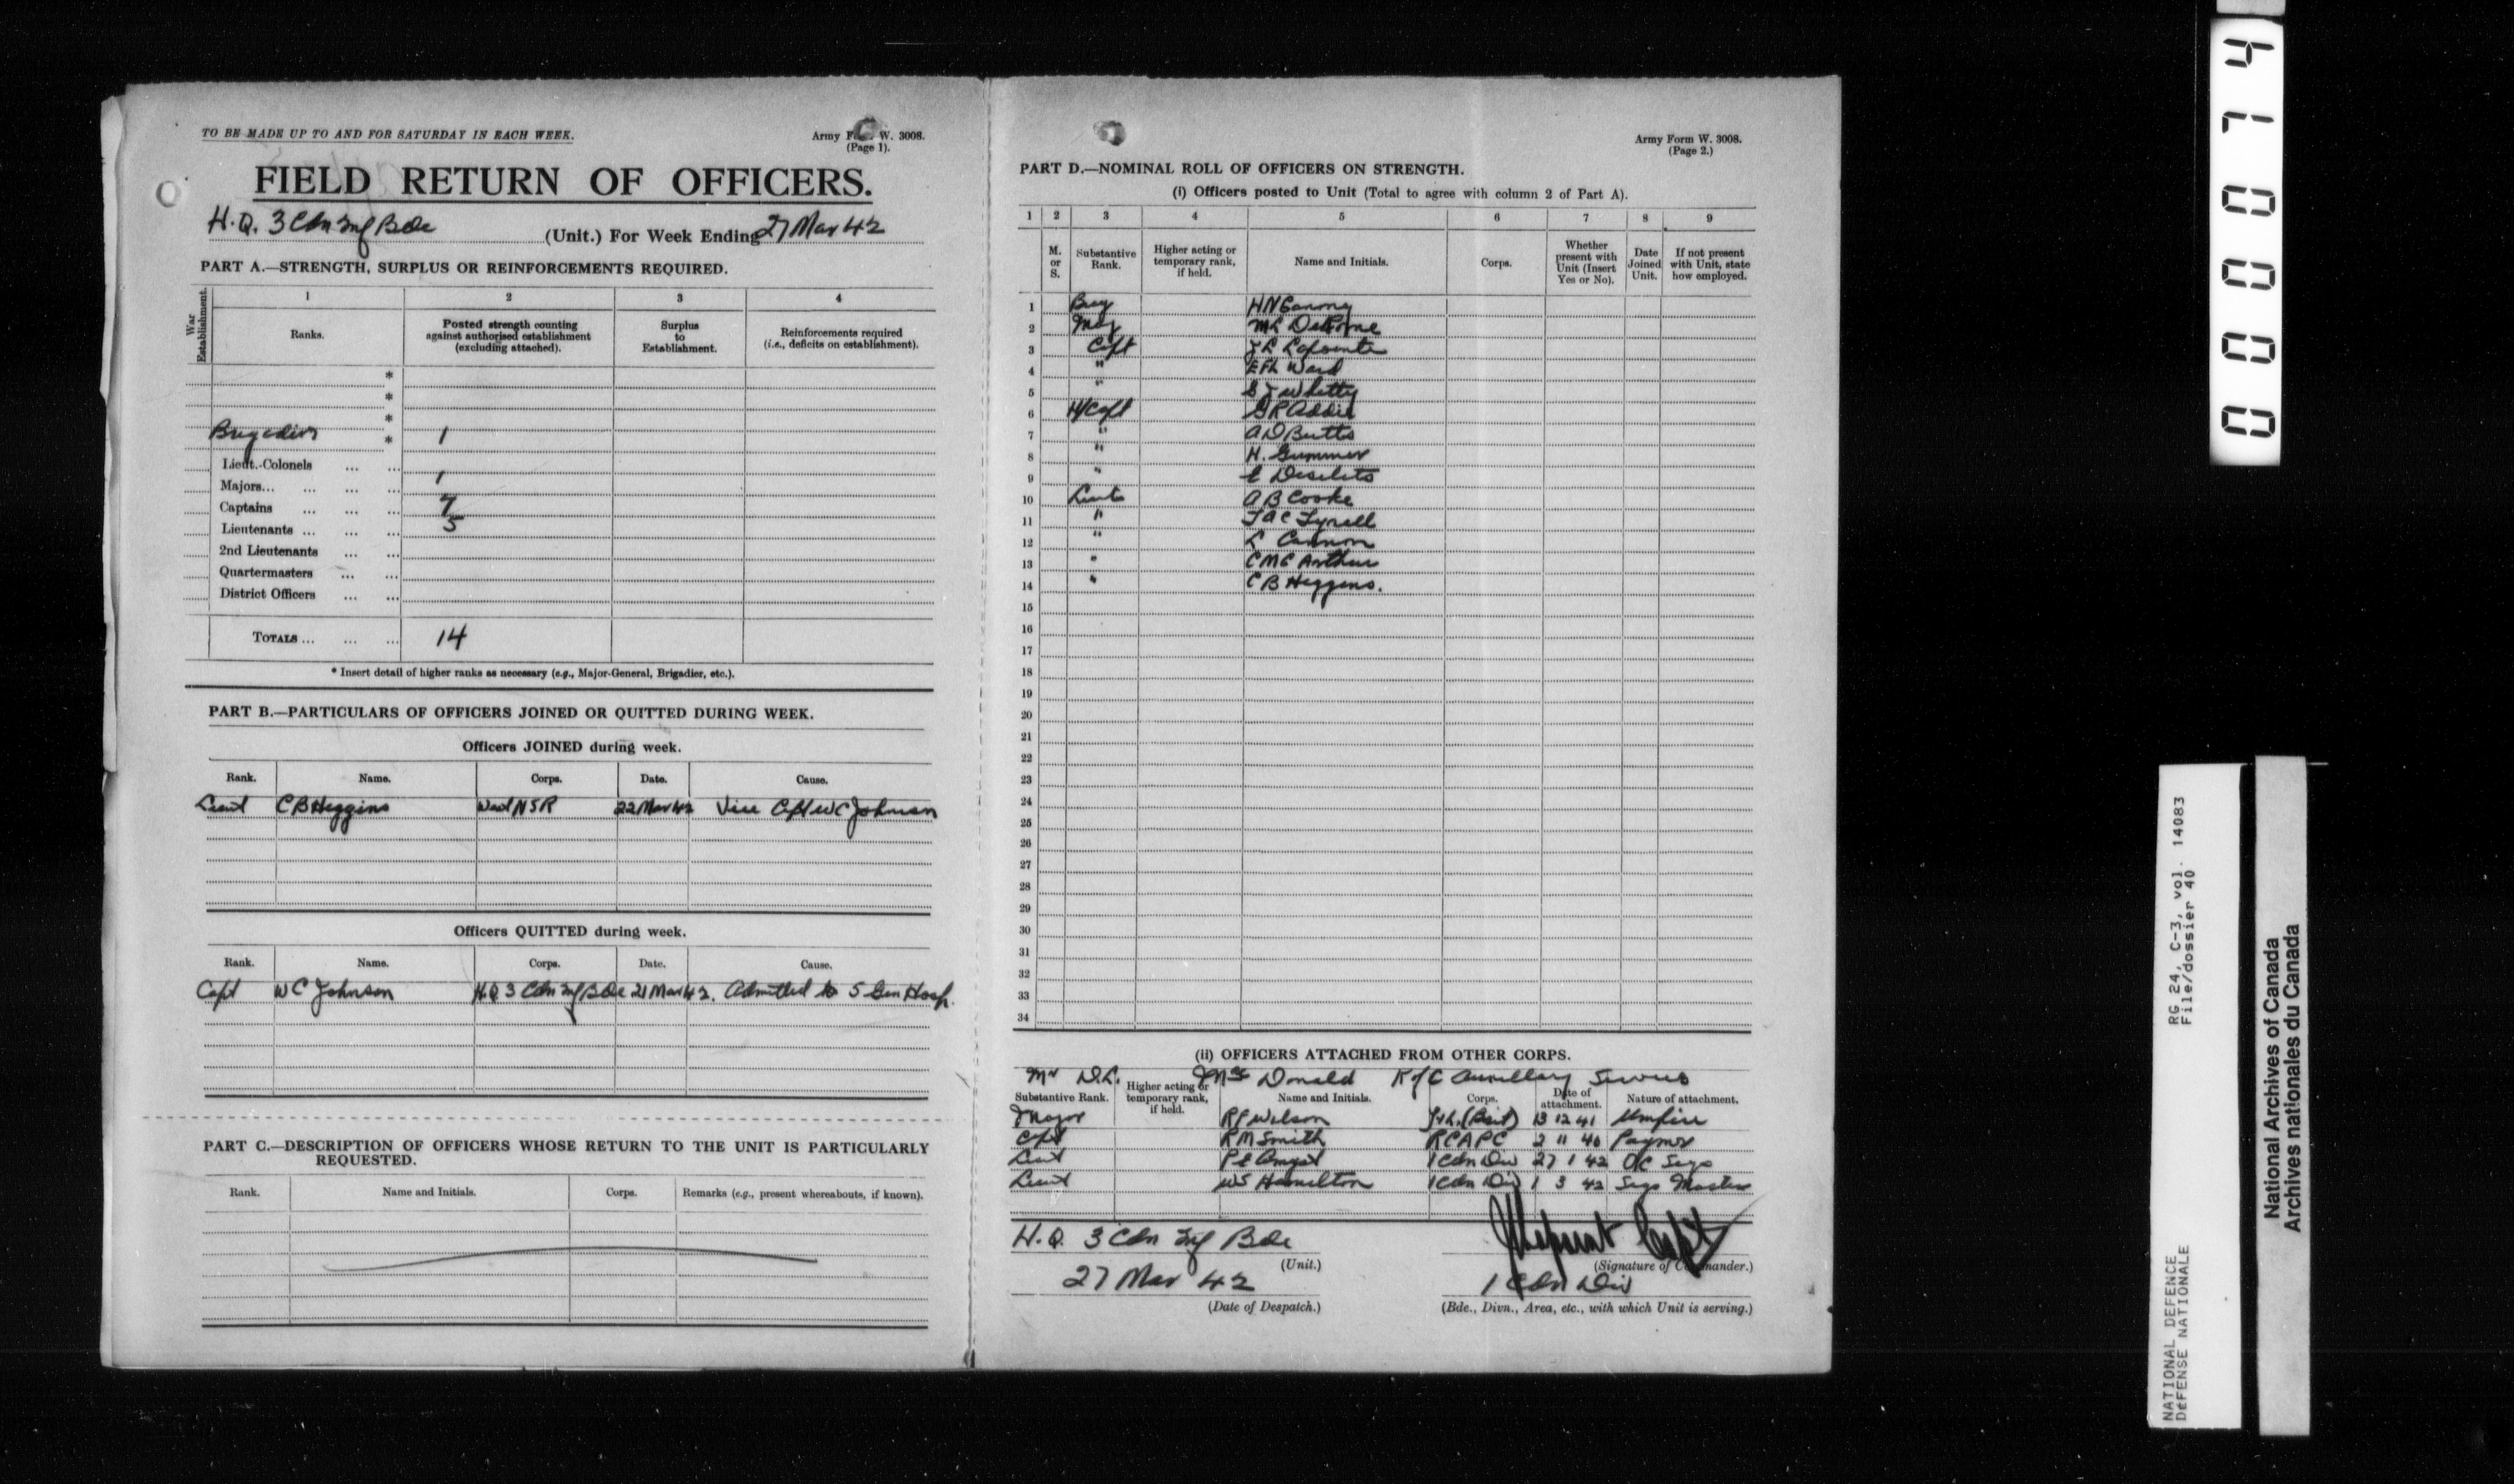 TO BE MADE UP TO AND FOR SATURDAY IN EACH WEEK.
Army W. 3008.
(Page 1).
FIELD RETURN OF OFFICERS.
H.Q. 3 Cdn Inf Bde (Unit.) For Week Ending 27 Mar 42
PART A.—STRENGTH, SURPLUS OR REINFORCEMENTS REQUIRED.
War Establishment.
1 2 3 4
Ranks.
Posted strength counting against authorised establishment (excluding attached).
Surplus to Establishment.
Reinforcements required (i.e., deficits on establishment).
*
*
*
Brigadier * 1
Lieut.-Colonels ... ...
Majors... ... ... ... 1
Captains ... ... ... 7
Lieutenants ... ... ... 5
2nd Lieutenants ... ...
Quartermasters ... ...
District Officers ... ...
TOTALS ... ... ... 14
* Insert detail of higher ranks as necessary (e.g., Major-General, Brigadier, etc.).
PART B.—PARTICULARS OF OFFICERS JOINED OR QUITTED DURING WEEK.
Officers JOINED during week.
Rank. Name. Corps. Date. Cause.
Lieut C B Higgins West N S R 22 Mar 42 Vice Capt W C Johnson
Officers QUITTED during week.
Rank. Name. Corps. Date. Cause.
Capt W C Johnson H.Q 3 Cdn Inf Bde 21 Mar 42. Admitted to 5 Gen Hosp.
PART C.—DESCRIPTION OF OFFICERS WHOSE RETURN TO THE UNIT IS PARTICULARLY
REQUESTED.
Rank. Name and Initials. Corps. Remarks (e.g., present whereabouts, if known).
Army Form W. 3008.
(Page 2.)
PART D.—NOMINAL ROLL OF OFFICERS ON STRENGTH.
(i) Officers posted to Unit (Total to agree with column 2 of Part A).
1 2 3 4 5 6 7 8 9
M. or S.
Substantive Rank.
Higher acting or temporary rank, if held.
Name and Initials.
Corps.
Whether present with Unit (Insert Yes or No).
Date Joined Unit.
If not present with Unit, state how employed.
1 Brig H N Ganong
2 Maj M L
3 Capt J L Lapointe
4 " E F L Ward
5 " S J Whitty
6 H/Capt G R Addie
7 " A D Butts
8 " H. Gummer
9 " E Desilets
10 Lieut A B Cooke
11 " J A C Tyrell
12 " L Cannon
13 " C McArthur
14 " C B Higgins.
15
16
17
18
19
20
21
22
23
24
25
26
27
28
29
30
31
32
33
34
(ii) OFFICERS ATTACHED FROM OTHER CORPS.
Mr D.L. McDonald K of C Auxillary Services
Substantive Rank. Higher acting or temporary rank, if held. Name and Initials. Corps. Date of attachment. Nature of attachment.
Major R P Wilson (Brit) 13 12 41 Umpire
Capt R M Smith RCAPC 2 11 40 Paymr
Lieut P E 1 Cdn Div 27 1 42 OC Sigs
Lieut W S Hamilton 1 Cdn Div 1 3 42 Sigs Master
H.Q. 3 Cdn Inf Bde
(Unit.)
27 Mar 42
(Date of Despatch.)
Capt
(Signature of Commander.)
1 Cdn Div
(Bde., Divn., Area, etc., with which Unit is serving.)
000074
RG 24, C-3, vol. 14083
File/dossier 40
NATIONAL DEFENCE
DÉFENSE NATIONALE
National Archives of Canada
Archives nationales du Canada